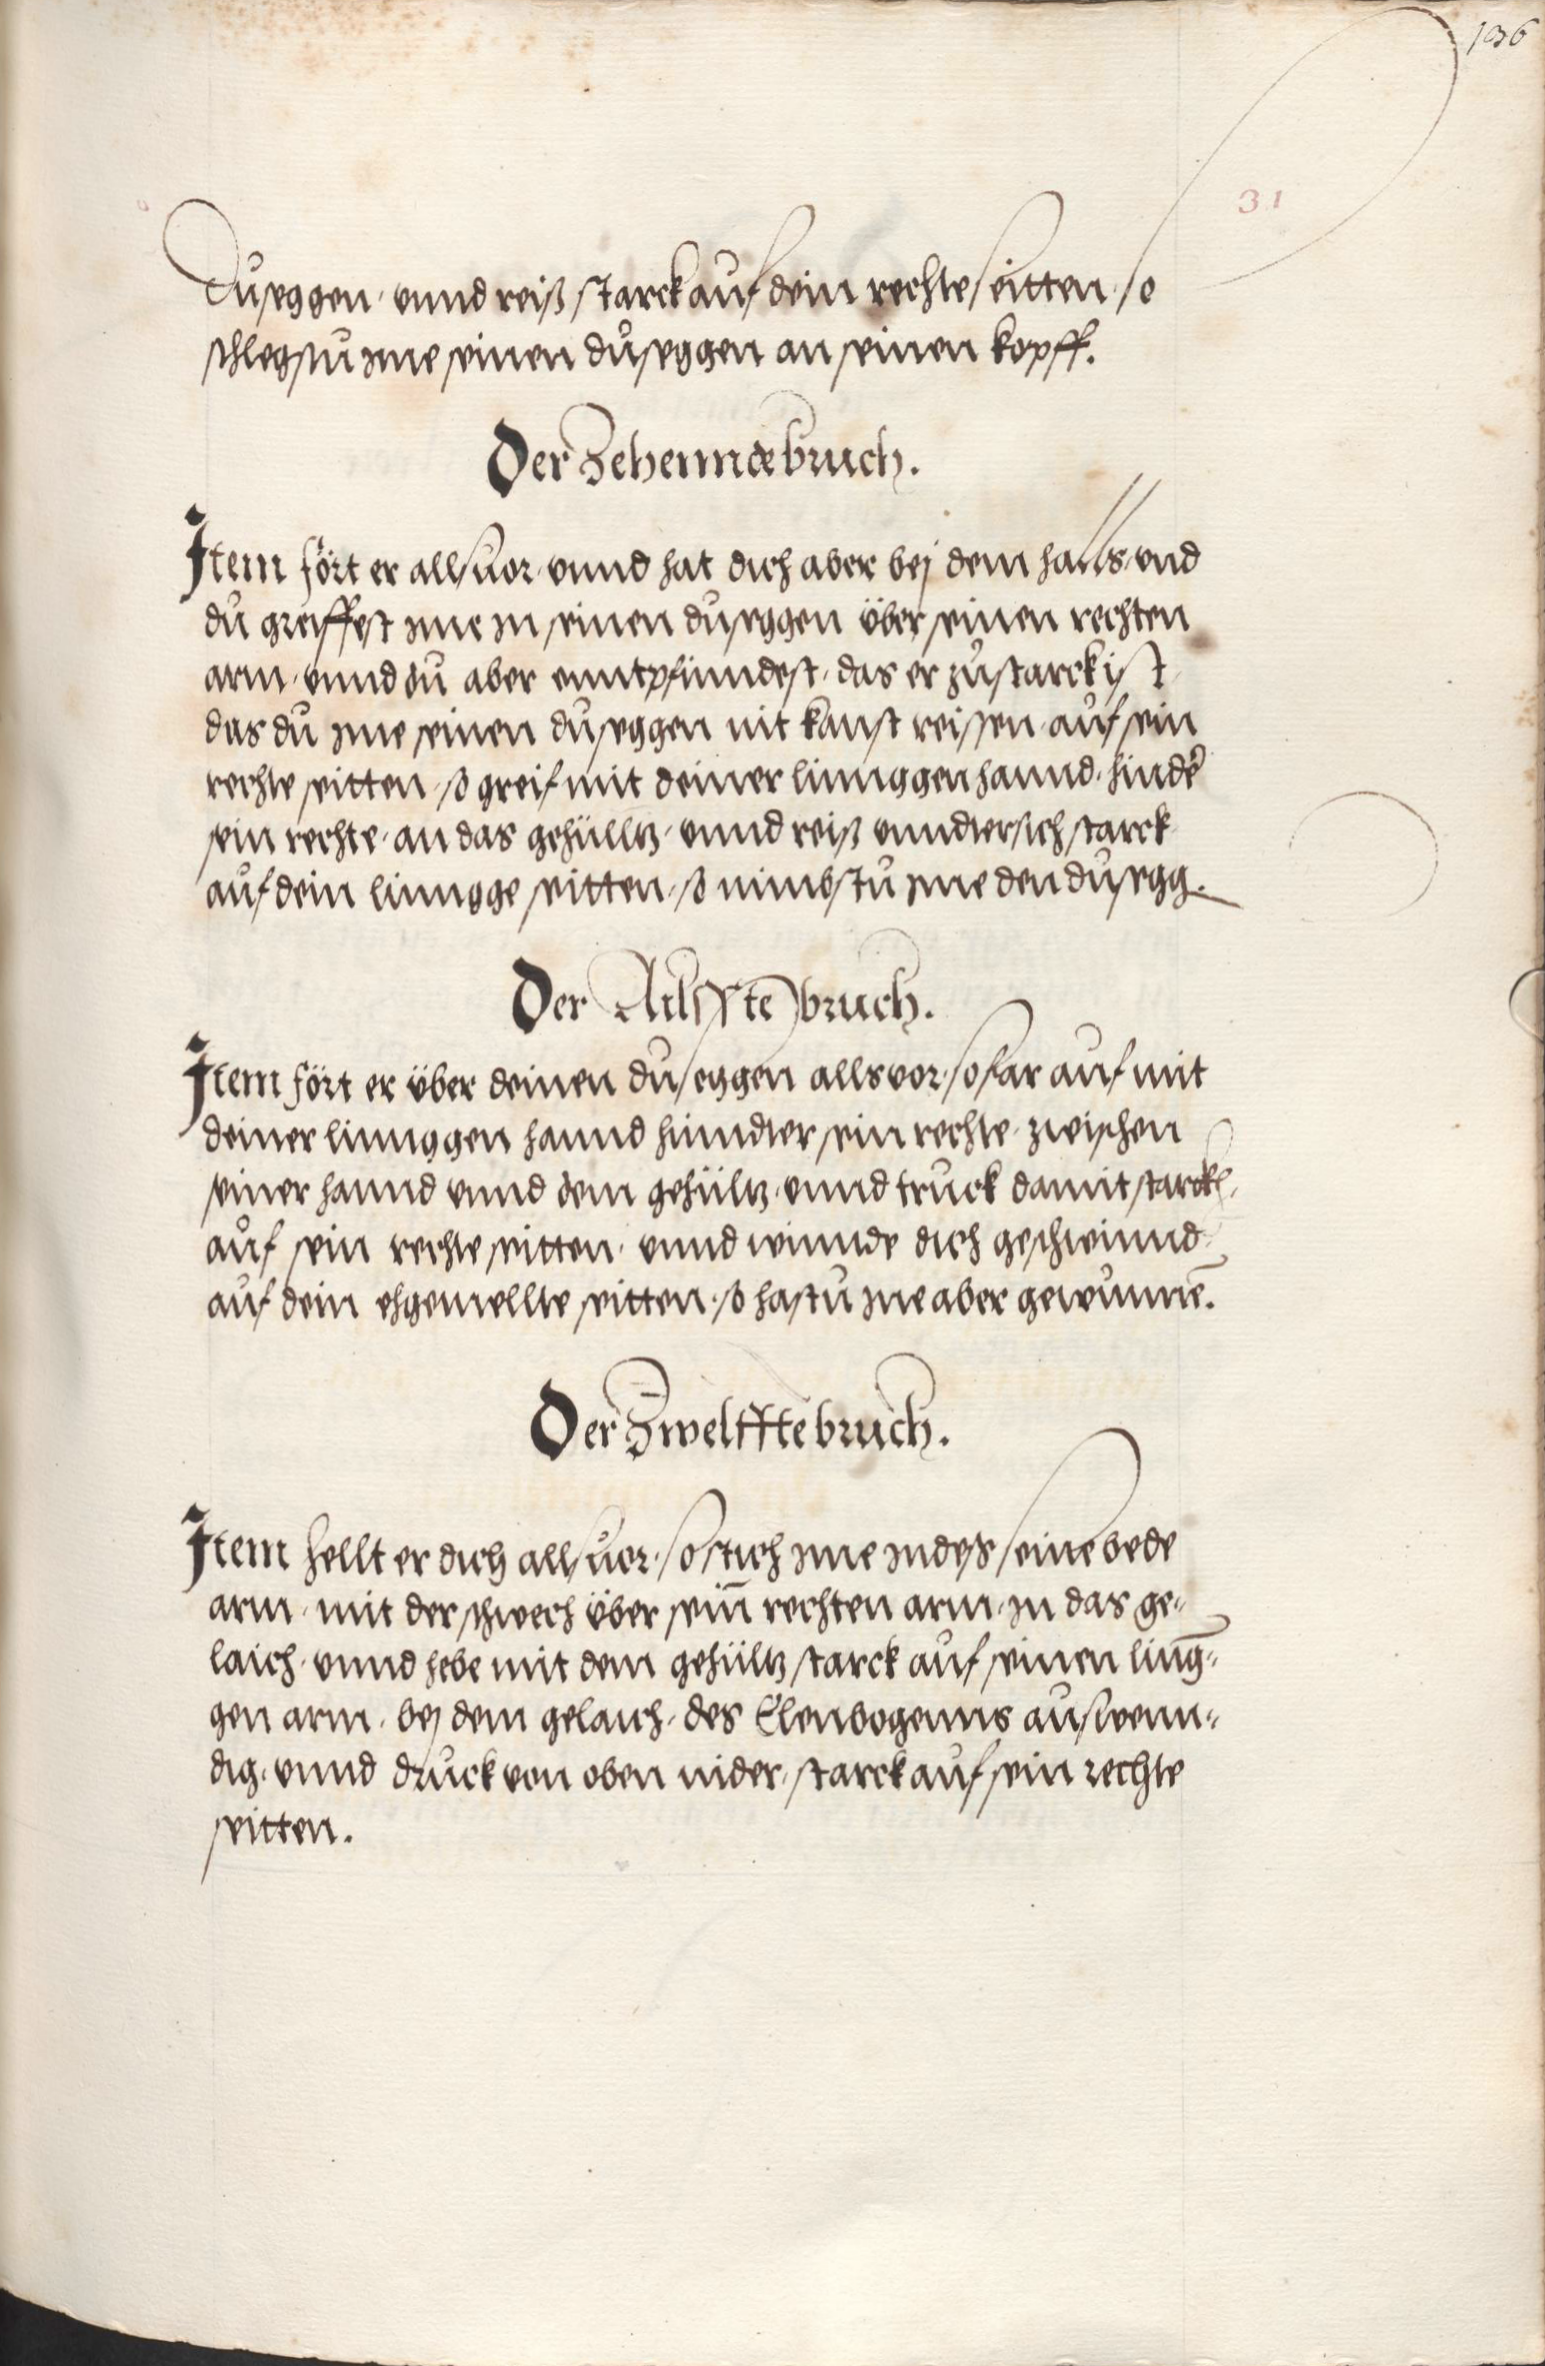 136
31
Duseggen vnnd reiß starck auf dein rechte seitten so
schlegstu jme seinen duseggen an seinen kopff.
Der Zehennde bruch.
Jtem fört er allsuor vnnd hat dich aber bej dem halls vnd
du greiffest jme jn seinen duseggen über seinen rechten
arm vnnd du aber enntpfinndest das er zustarck ist
das du jme seinen duseggen nit kanst reissen auf sein
rechte seitten so greif mit deiner linnggen hannd hinder
sein rechte an das gehülltz vnnd reiß vnndersich starck
auf dein linngge seitten so nimbstu jme den dusegg.
Der Ailffte bruch.
Jtem fört er über deinen duseggen alls vor so far auf mit
deiner linnggen hannd hinnder sein rechte zwischen
seiner hannd vnnd dem gehültz vnnd truck damit starck
auf sein rechte seitten vnnd winnde dich geschwinnd
auf dein ehgemellte seitten so hastu jme aber gewunnē.
Der Zwelffte bruch.
Jtem hellt er dich allsuor so stich jme jndes seine bede
arm mit der schwech über sein̄ rechten arm jn das ge-
laich vnnd hebe mit dem gehültz starck auf seinen ling-
gen arm bej dem gelaich des Elenbogenns auswenn-
dig vnnd druck von oben nider starck auf sein rechte
seitten.